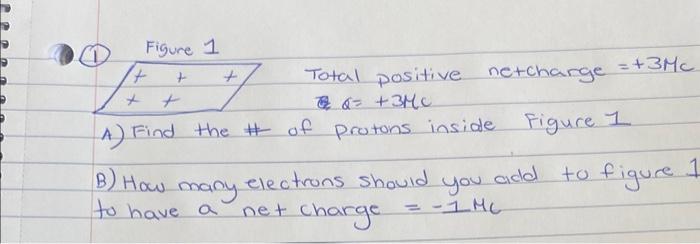 ① Figure 1
+ + +
+ +
Total positive netcharge = +3Mc
Q = +3Mc
A) Find the # of protons inside Figure 1
B) How many electrons should you add to figure 1
to have a net charge = -1Mc